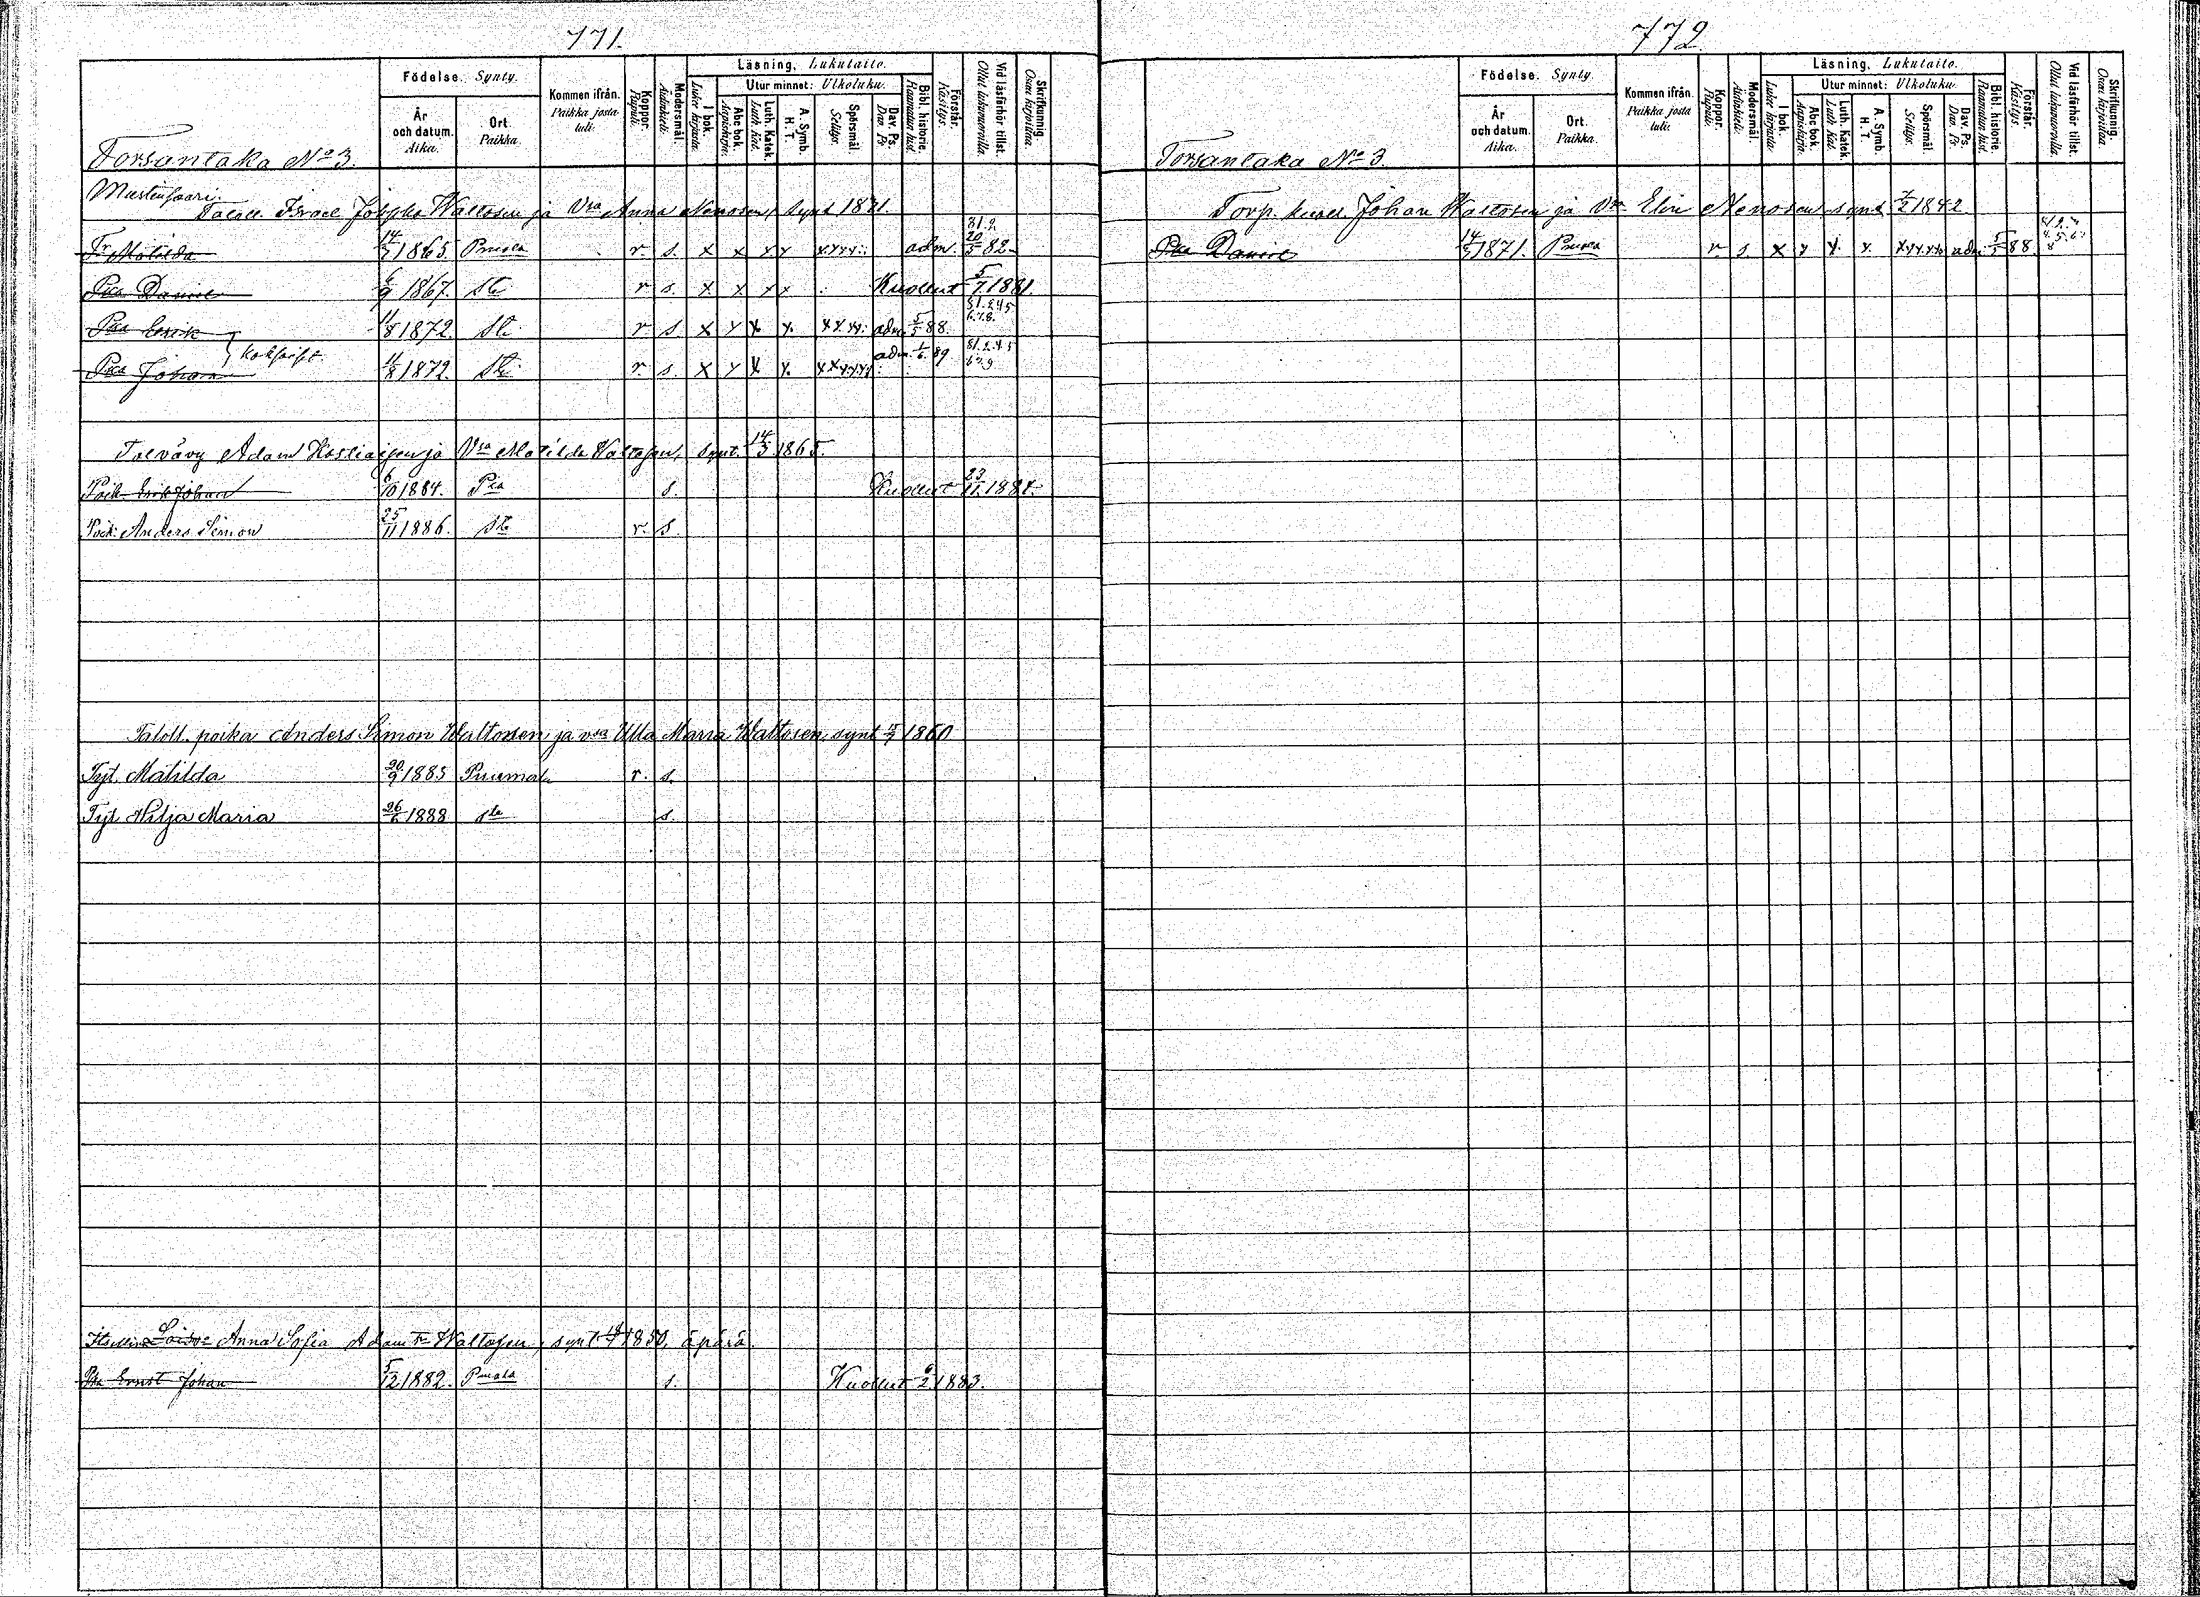 771.
Födelse. Synty.
År och datum. Aika.
Ort. Paikka.
Kommen ifrån. Paikka josta tuli.
Koppor. Rupuli.
Modersmål. Äidinkieli.
Läsning, Lukutaito.
I bok. Lukee kirjasta.
Utur minnet: Ulkoluku.
Abc bok. Aapiskirja.
Luth. Katek. Luth. Kat.
A. Symb. H. T.
Spörsmål. Selitys.
Dav. Ps. Dav. Ps.
Bibl. historie. Raamatun hist.
Förstår. Käsitys.
Vid läsförhör tillst. Ollut lukuvuorolla.
Skrifkunnig. Osaa kirjoittaa.
Torsantaka No 3.
Mustensaari.
Taloll. Israel Johpho Waltosen ja Vsa Anna Nenosen, synt 1831.
Tr Matilda 14/3 1865. Pmala r. s. x x x x xxxx adm. 20/5 82 81.2
Pka Daniel 6/9 1867. sta r s. x x x x Kuollut 5/7 1881.
Pka Eerik 11/8 1872. sta r s x x x x. xxxx: adm. 5/5 88. 81.2.4.5 6.7.8.
Kaksoist.
Pka Johan 11/8 1872 sta r. s. x x x x. xxxxx adm. 1/6. 89 81.2.4.5
Talvävy Adam Hasliaisen ja Vsa Matilda Waltosen, synt. 14/3 1865.
Poik Erik Johan 6/10 1884. Pla s. Kuollut 23/11 1884.
Poik: Anders Simon 25/11 1886. sta r. s.
Taloll. poika Anders Simon Waltosen ja vsa Ulla Maria Waltosen, synt 1860
Tyt. Matilda 20/9 1885 Puumala r. s.
Tyt Hilja Maria 26/6 1888 sta s.
Itsellinen Loisve Anna Sofia Adam Tr Waltosen, synt 1850, äpärä.
Pka Ernst Johan 5/12 1882. Pmala s. Kuollut 6/2 1883.
772.
Födelse. Synty.
År och datum. Aika.
Ort. Paikka.
Kommen ifrån. Paikka josta tuli.
Koppor. Rupuli.
Modersmål. Äidinkieli.
Läsning, Lukutaito.
I bok. Lukee kirjasta.
Utur minnet: Ulkoluku.
Abc bok. Aapiskirja.
Luth. Katek. Luth. Kat.
A. Symb. H. T.
Spörsmål. Selitys.
Dav. Ps. Dav. Ps.
Bibl. historie. Raamatun hist.
Förstår. Käsitys.
Vid läsförhör tillst. Ollut lukuvuorolla.
Skrifkunnig. Osaa kirjoittaa.
Torsantaka No 3.
Torp. kuoll Johan Waltosen ja Vsa Elin Nenosen synt 7/2 1842
Pka Daniel 14/5 1871. Pmala r s. x x x. x. xxxxx adm. 5/5 88.